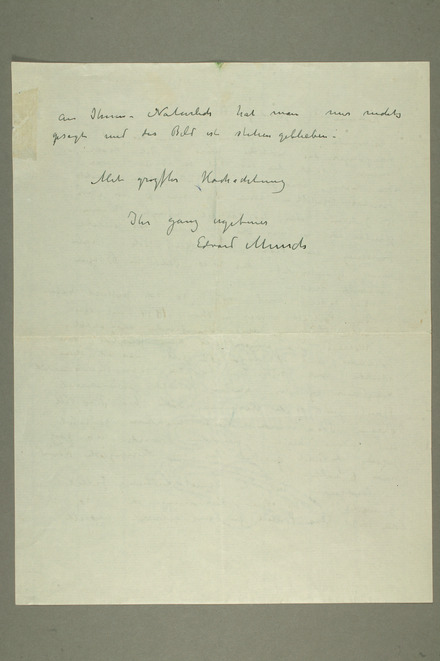 an Ihnen – Naturlich hat man mir nichts
gesagt und das Bild ist stehen geblieben –
Mit grosster Hochachtung
Ihr ganz ergebener
Edvard Munch